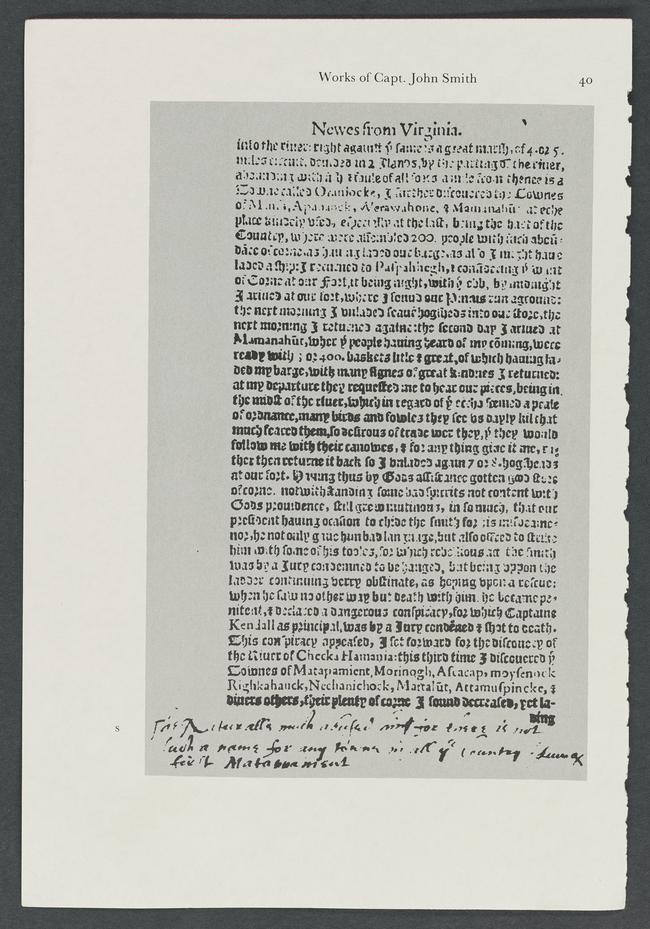 Works of Capt. John Smith 40
Newes from Virginia.
into the river: right against yͤ same is a great marsh, of 4. or 5.
miles circuit, devided in 2 Ilands, by the parting of the river,
abounding with fish & foule of all sorts a mile from thence is a
Towne called Oraniocke, I further discovered the Townes
of Apanaock, Werawahone, & Mamanahūt at eche
place kindely vsed, especially at the last, being the hart of the
Country, where were assembled 200. people with such
of corne, as having laded our barge, as also I might have
laded a ship: I returned to Paspahhegh, & considering yͤ want
of Corne at our Fort, it being night, with yͤ ebb, by midnight
I arived at our fort, where I found our Pinnis run aground:
the next morning I vnladed seaven hogsheds into our store, the
next morning I returned againe: the second day I arived at
Mamanahūt, wher yͤ people having heard of my cōming, were
ready with 3 or 400. baskets litle & great, of which having la-
ded my barge, with many signes of great kindnes I returned:
at my departure they requested me to hear our pieces, being in
the midst of the river, which in regard of yͤ eccho seemed a peale
of ordnance, many birds and fowles they see vs dayly kil that
much feared them, so desirous of trade wer they, yͭ they would
follow me with their canowes, & for any thing give it me, ra-
ther then returne it back so I vnladed again 7 or 8. hogsheads
at our fort. Having thus by Gods assistance gotten good store
of corne, notwithstanding some bad spirits not content with
Gods providence, still grew mutinous, in so much, that our
president having ocasion to chide the smith for his misdemea-
nor, he not only gave him bad language, but also offred to strike
him with some of his tooles, for which rebellious act the smith
was by a Jury condemned to be hanged, but being vppon the
ladder continuing verry obstinate, as hoping vpon a rescue:
when he saw no other way but death with him, he became pe-
nitent, & declared a dangerous conspiracy, for which Captaine
Kendall as principal, was by a Jury condēned & shot to death.
This conspiracy appeased, I set forward for the discovery of
the River of Checka Hamania: this third time I discovered yͤ
Townes of Matapamient, Morinogh, Ascacap, moysenock
Righkahauck, Nechanichock, Mattalūt, Attamuspincke, &
divers others, their plenty of corne I found decreased, yet la-
ding
s
much for there is not
such a name for any in all yͤ Country